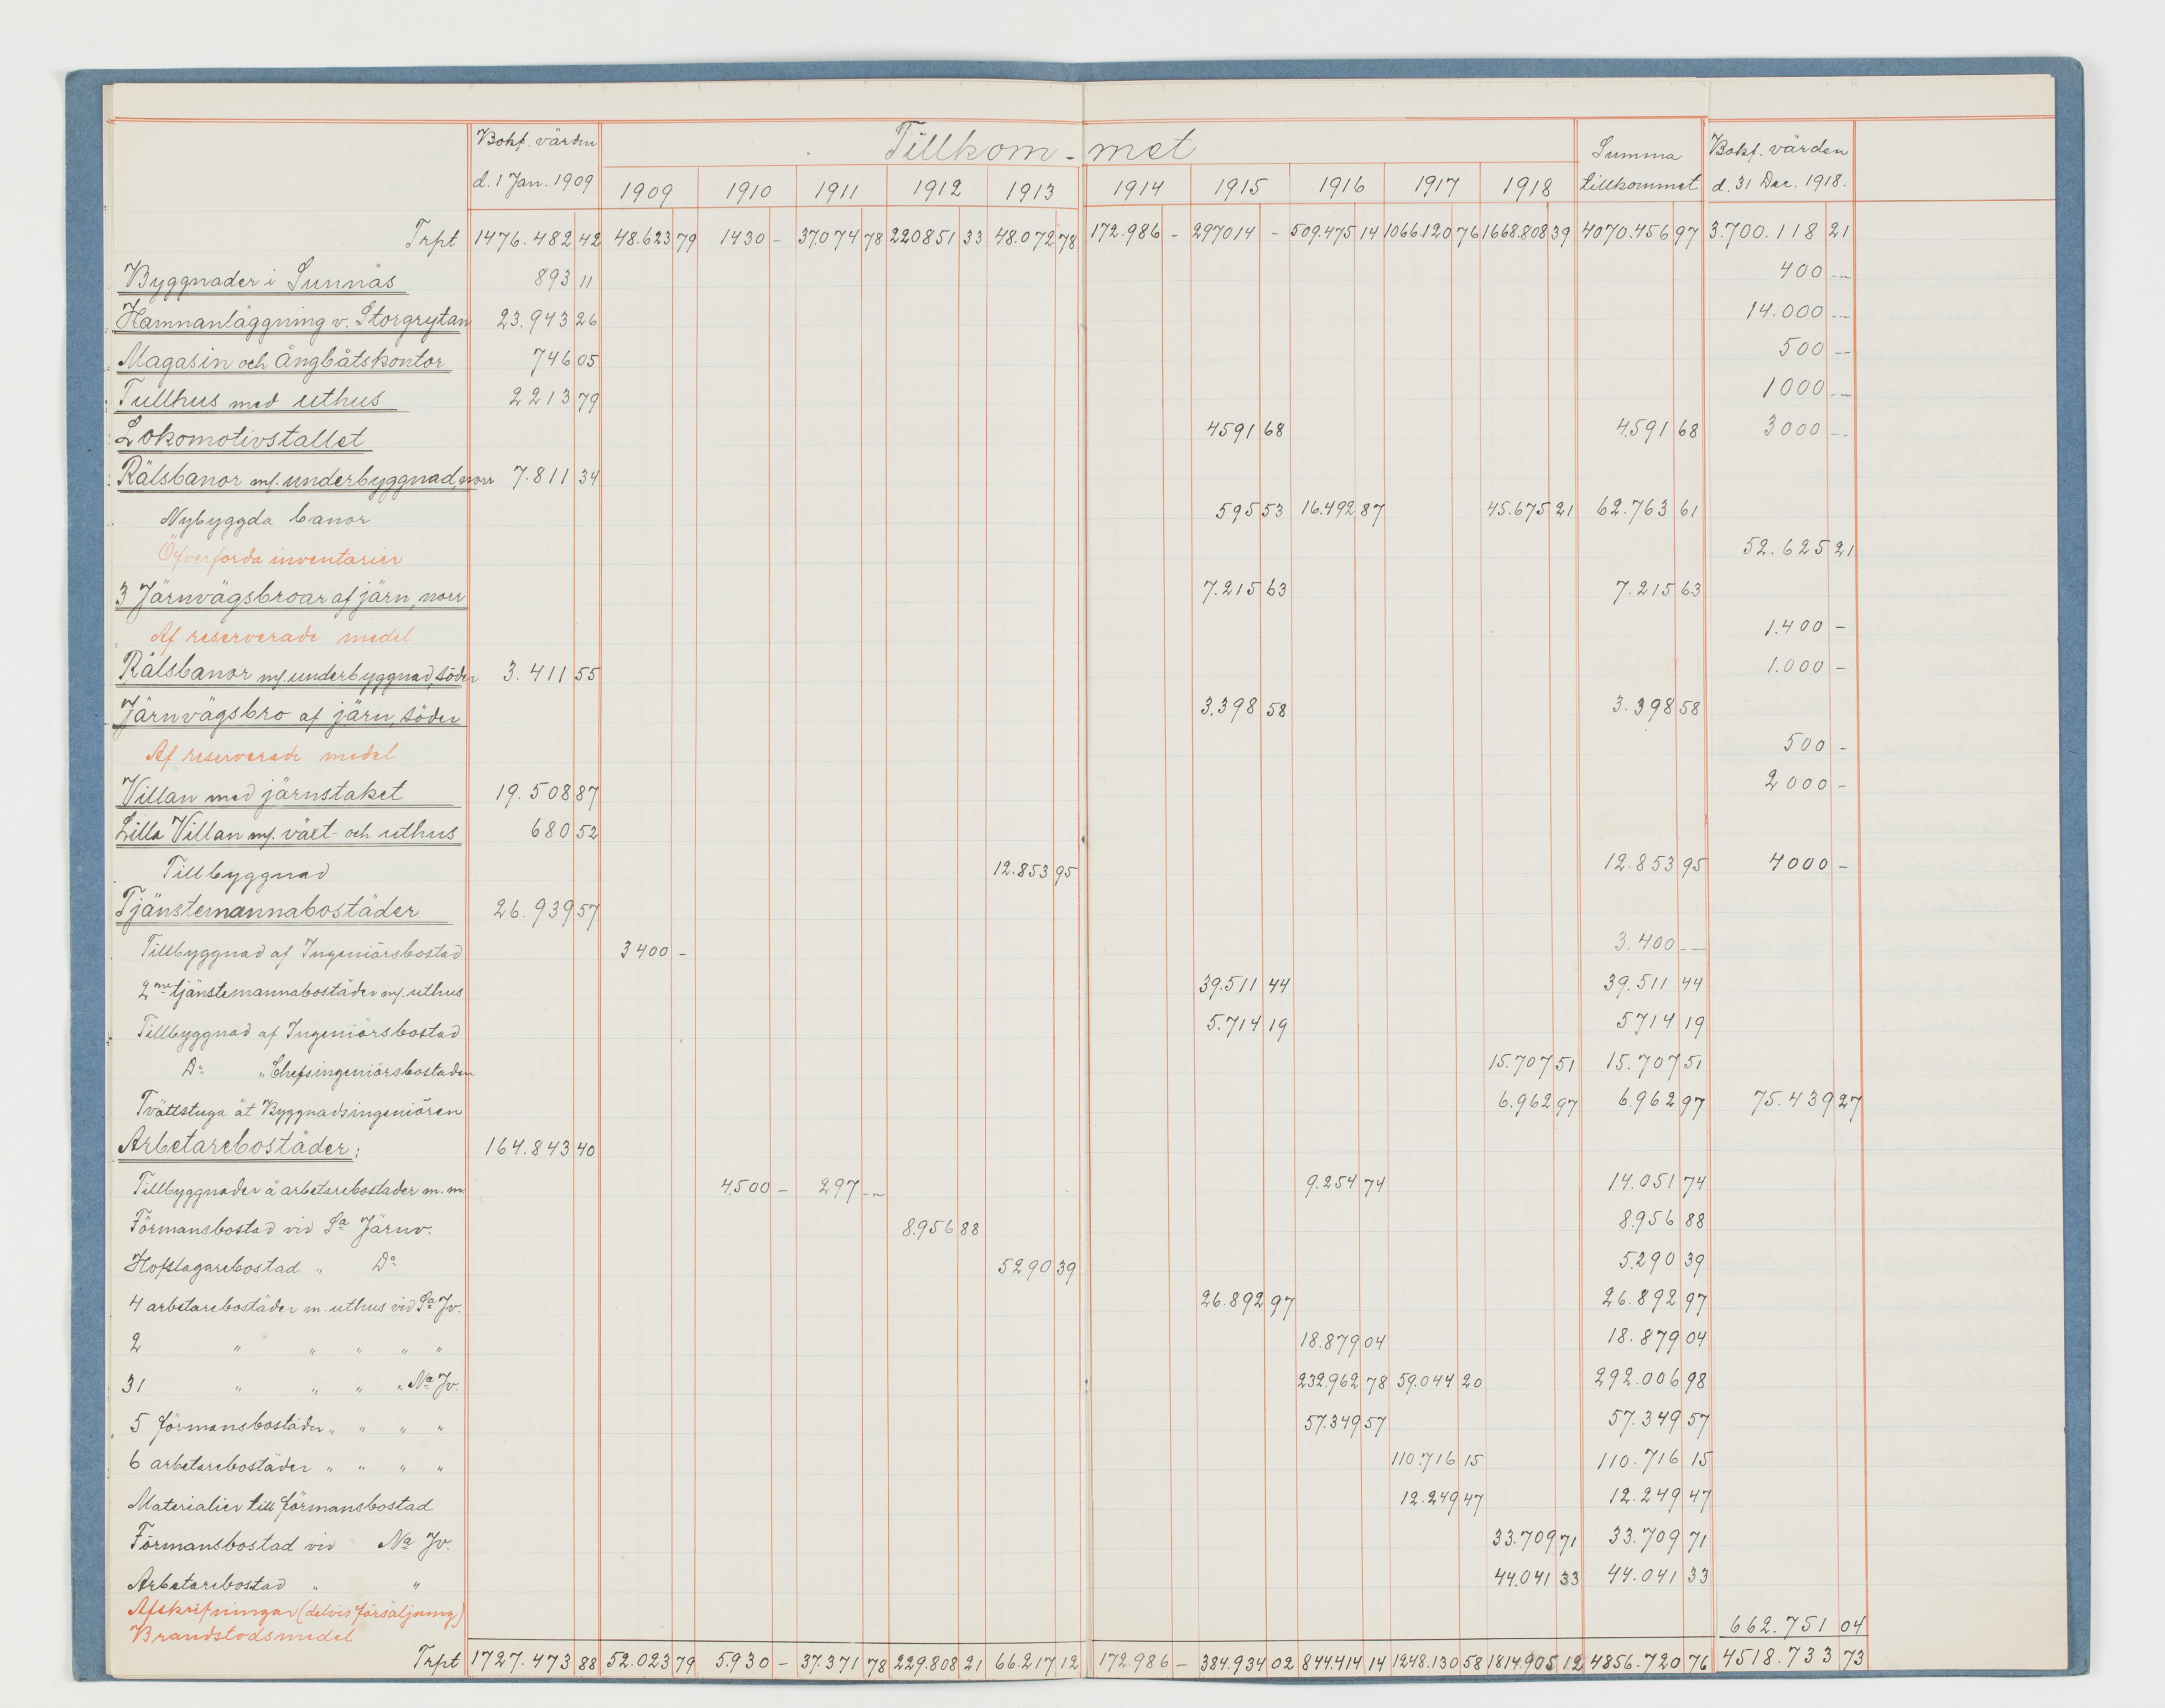 Bokf. värden Tillkom - met Summa Bokf. värden
d. 1 Jan. 1909 1909 1910 1911 1912 1913 1914 1915 1916 1917 1918 tillkommet d. 31 Dec. 1918.
Trpt 1476.482 42 48.623 79 1430 - 37.074 78 220851 33 48.072 78 172.986 - 297014 - 509.475 14 1066.120 76 1668.808 39 4070.456 97 3.700.118 21
Byggnader i Sunnäs 893 11 400 -
Hamnanläggning v. Storgrytan 23.943 26 14.000 -
Magasin och Ångbåtskontor 746 05 500 -
Tullhus med uthus 2213 79 1000 -
Lokomotivstallet 4591 68 4591 68 3000 -
Rälsbanor m/. underbyggnad, norr 7.811 34
Nybyggda banor 595 53 16.492 87 45.675 21 62.763 61
Öfverförda inventarier 52.625 21
3 Järnvägsbroar af järn, norr 7.215 63 7.215 63
Af reserverade medel 1.400 -
Rälsbanor m/. underbyggnad, söder 3.411 55 1.000 -
Järnvägsbro af järn, söder 3.398 58 3.398 58
Af reserverade medel 500 -
Villan med järnstaket 19.508 87 2000 -
Lilla Villan m/. växt- och uthus 680 52
Tillbyggnad 12.853 95 12.853 95 4000 -
Tjänstemannabostäder 26.939 57
Tillbyggnad af Ingeniörsbostad 3400 - 3.400 -
2 ne tjänstemannabostäder m/. uthus 39.511 44 39.511 44
Tillbyggnad af Ingeniörsbostad 5.714 19 5714 19
Do „ Chefsingeniörsbostaden 15.707 51 15.707 51
Tvättstuga åt Byggnadsingeniören 6.962 97 6.962 97 75.439 27
Arbetarebostäder: 164.843 40
Tillbyggnader å arbetarebostäder m.m. 4.500 - 297 - 9.254 74 14.051 74
Förmansbostad vid Sa Järnv. 8.956 88 8.956 88
Hofslagarebostad „ Do 5290 39 5.290 39
4 arbetarebostäder m. uthus vid Sa Jv. 26.892 97 26.892 97
2 „ „ „ „ „ 18.879 04 18.879 04
31 „ „ „ „ Na Jv. 232.962 78 59.044 20 292.006 98
5 förmansbostäder „ „ „ „ 57.349 57 57.349 57
6 arbetarebostäder „ „ „ „ 110.716 15 110.716 15
Materialier till förmansbostad 12.249 47 12.249 47
Förmansbostad vid Na Jv. 33.709 71 33.709 71
Arbetarebostad „ „ 44.041 33 44.041 33
Afskrifningar (delvis försäljning)
Brandstodsmedel 662.751 04
Trpt 1727.473 88 52.023 79 5.930 - 37.371 78 229.808 21 66.217 12 172.986 - 384.934 02 844.414 14 1248.130 58 1814.905 12 4856.720 76 4518.733 73